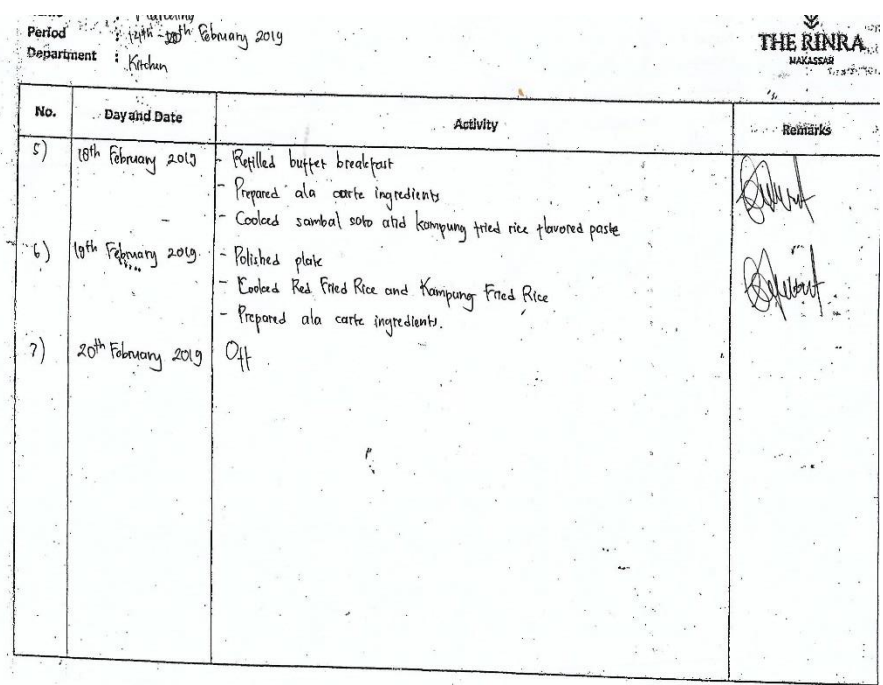 Period : 14th - 20th February 2019
Department : Kitchen
THE RINRA
MAKASSAR
No. Day and Date Activity Remarks
5) 18th February 2019 - Refilled buffet breakfast
- Prepared ala carte ingredients
- Cooked sambal soto and kampung fried rice flavored paste
6) 19th February 2019 - Polished plate
- Cooked Red Fried Rice and Kampung Fried Rice
- Prepared ala carte ingredients.
7) 20th February 2019 Off